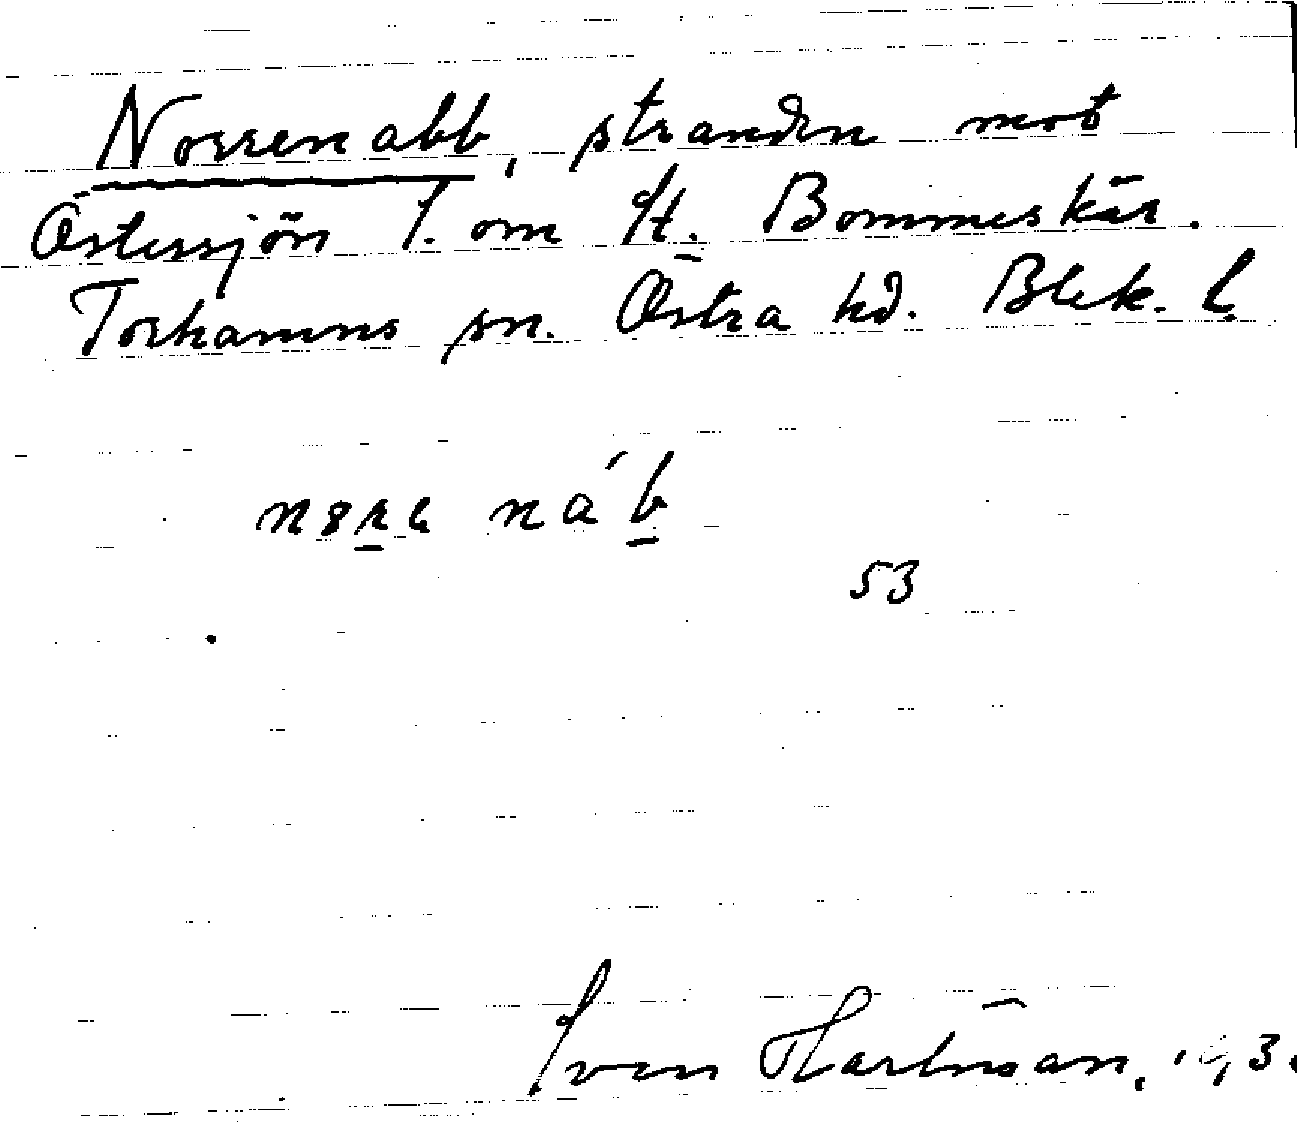 Norrenabb, stranden mot
Östersjön S. om St. Bommeskär.
Torhamns sn. Östra hd. Blek. l.
53
Sven Hartman, 193